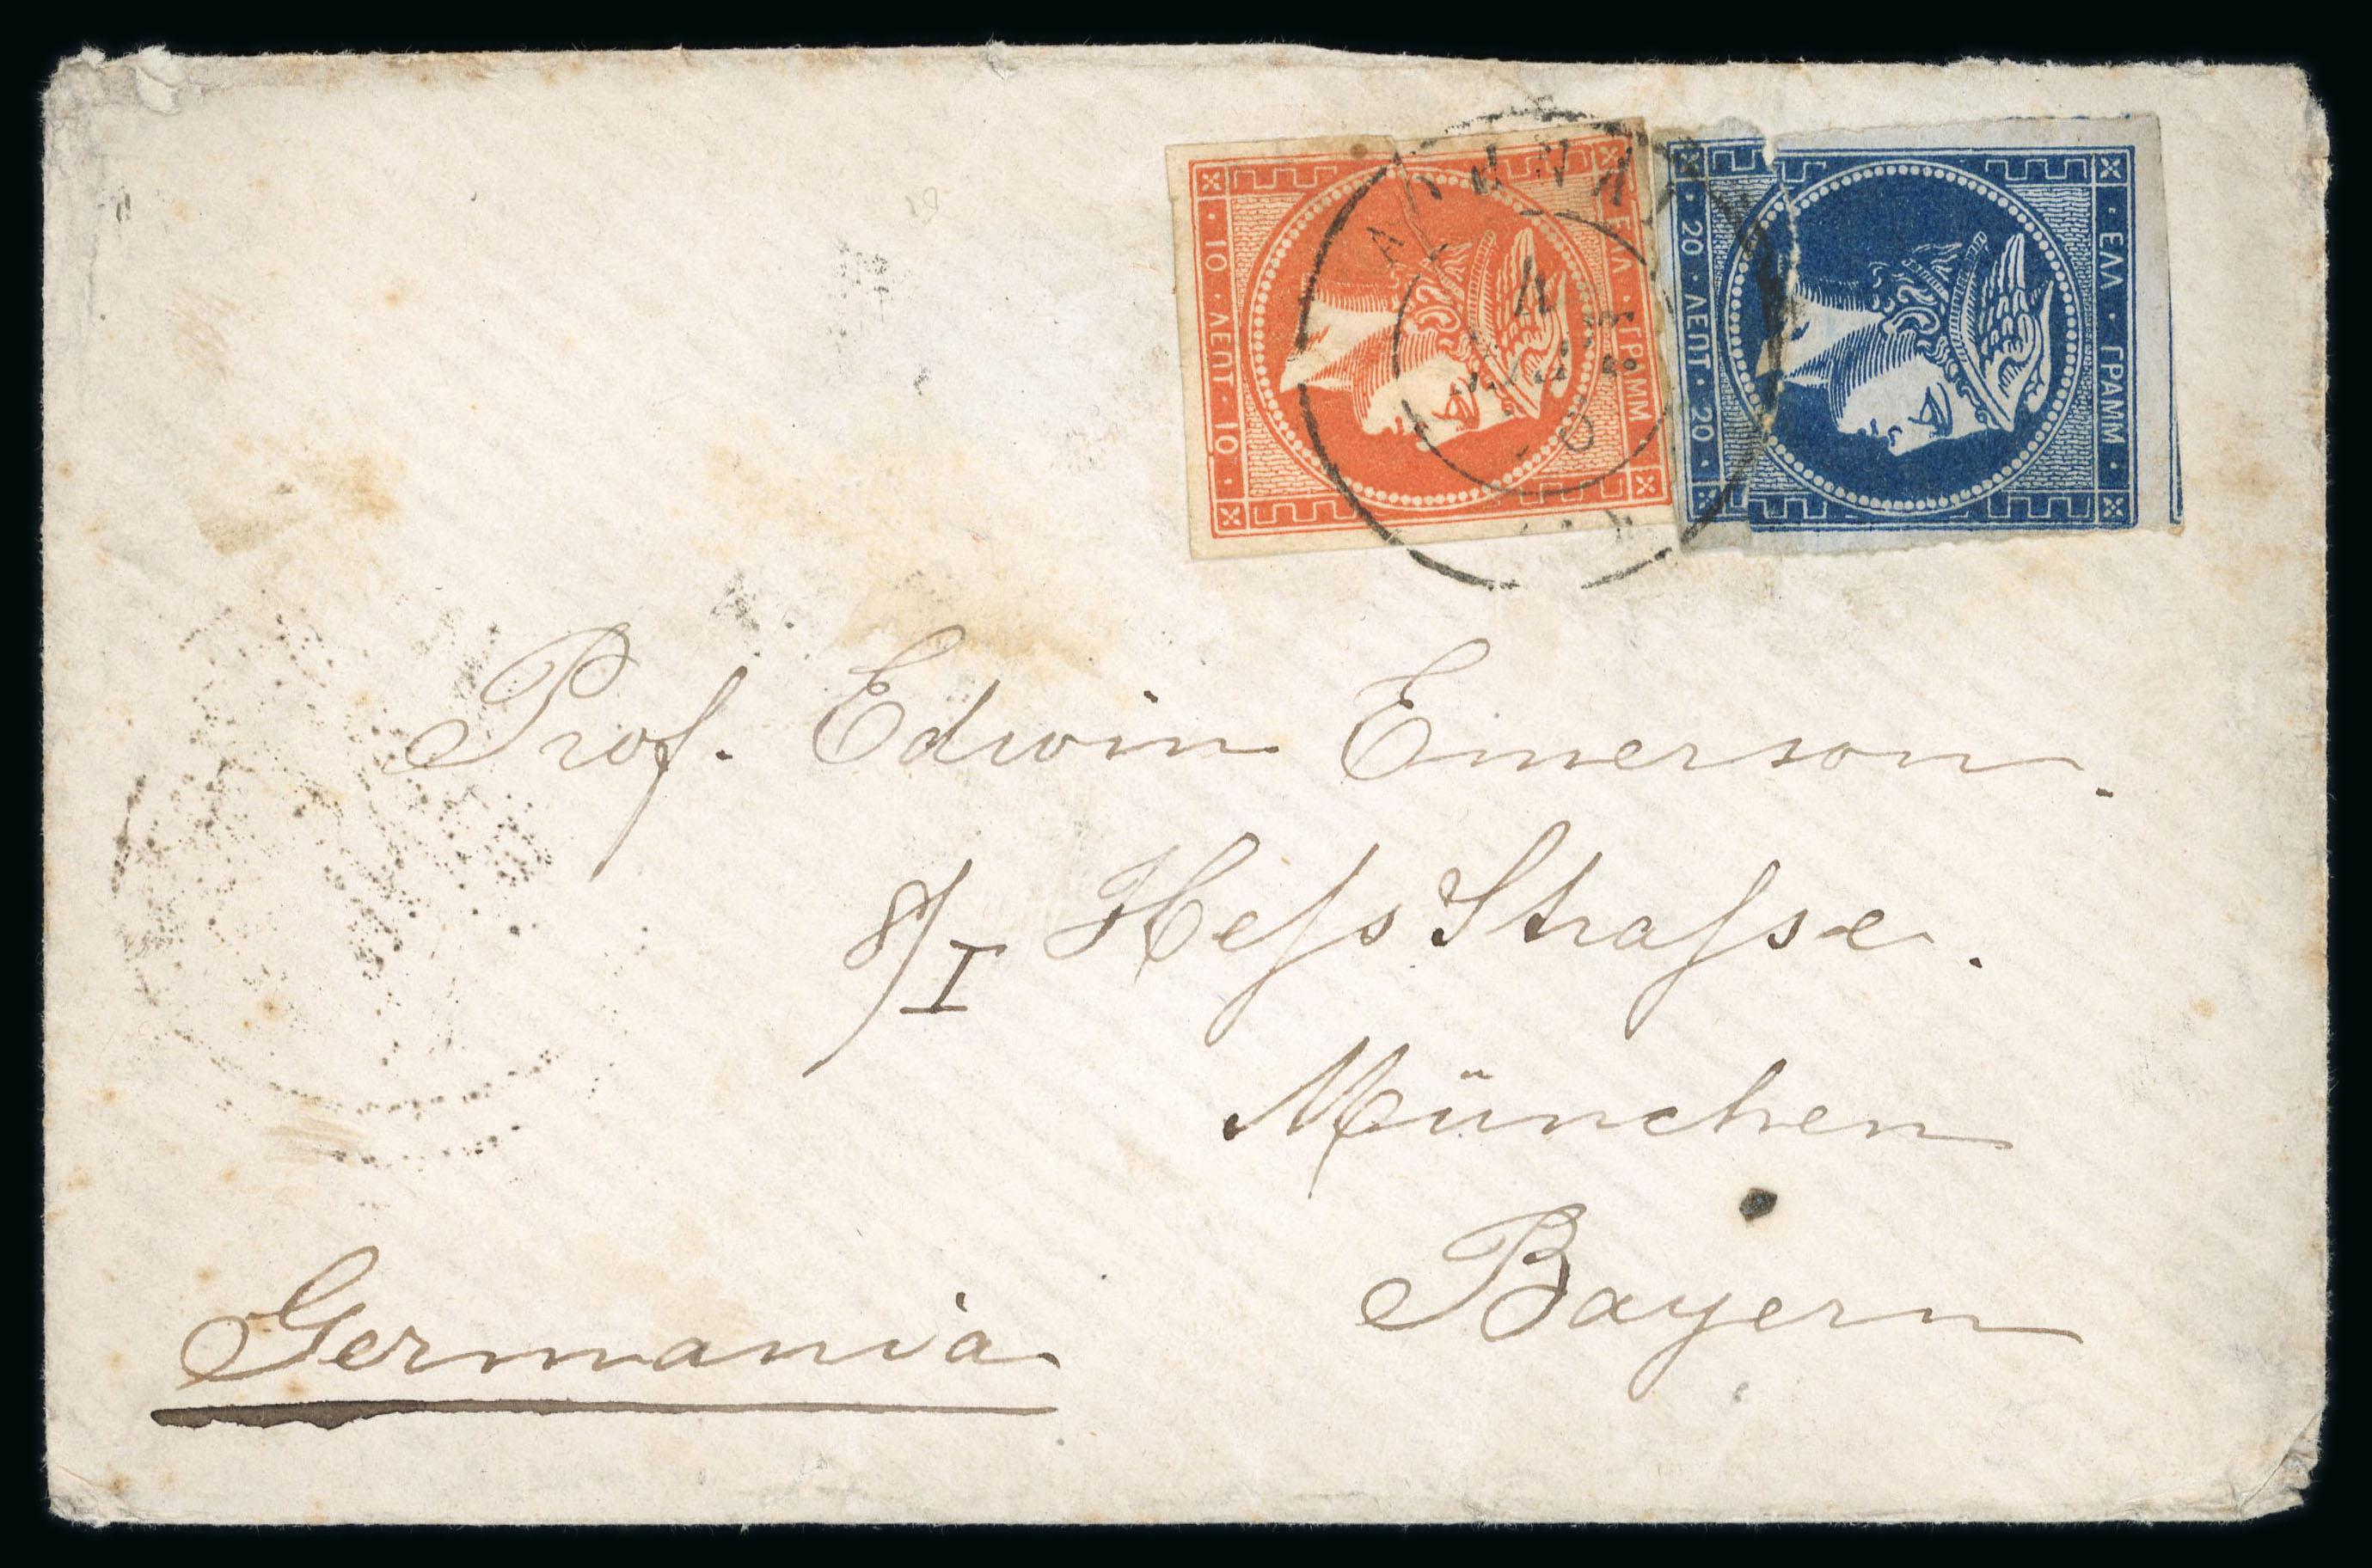 ΕΛΛ · ΓΡΑΜΜ
10 · ΛΕΠΤ · 10
ΕΛΛ · ΓΡΑΜΜ
20 · ΛΕΠΤ · 20
4
Prof. Edwin Emerson.
8/I Hefs Strafse.
München
Bayern
Germania.